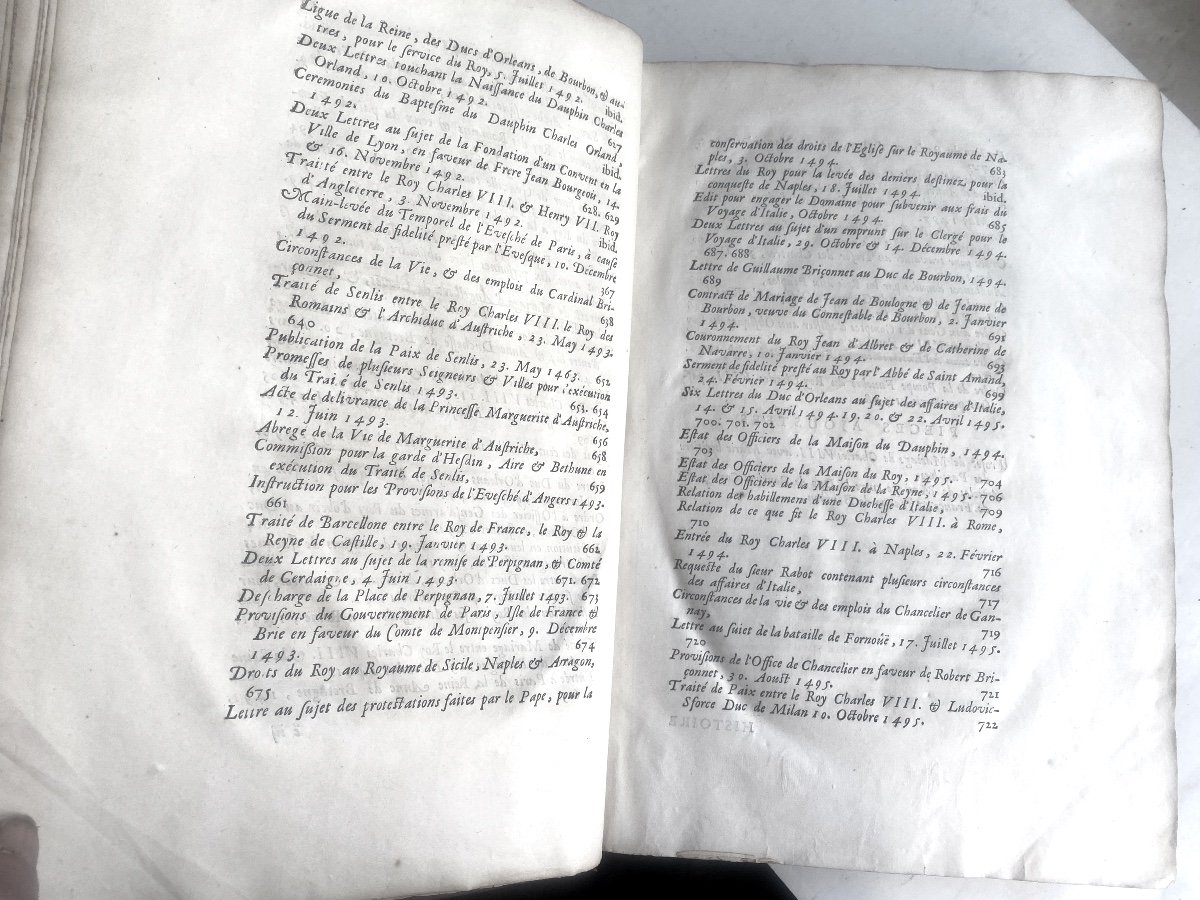 Ligue de la Reine, des Ducs d'Orleans, de Bourbon, & au-
tres, pour le service du Roy, 5. Juillet 1492. ibid.
Deux Lettres touchant la Naissance du Dauphin Charles
Orland, 10. Octobre 1492. 627
Ceremonies du Baptesme du Dauphin Charles Orland,
1492. ibid.
Deux Lettres au sujet de la Fondation d'un Convent en la
Ville de Lyon, en faveur de Frere Jean Bourgeou, 14.
& 16. Novembre 1492. 628. 629
Traité entre le Roy Charles VIII. & Henry VII. Roy
d'Angleterre, 3. Novembre 1492. ibid.
Main-levée du Temporel de l'Evesché de Paris, à cause
du Serment de fidelité presté par l'Evesque, 10. Décembre
1492. 367
Circonstances de la Vie, & des emplois du Cardinal Bri-
çonnet, 638
Traité de Senlis entre le Roy Charles VIII. le Roy des
Romains & l'Archiduc d'Austriche, 23. May 1493.
640
Publication de la Paix de Senlis, 23. May 1463. 652
Promesses de plusieurs Seigneurs & Villes pour l'execution
du Traité de Senlis 1493. 653. 654
Acte de delivrance de la Princesse Marguerite d'Austriche,
12. Juin 1493. 656
Abregé de la Vie de Marguerite d'Austriche, 658
Commission pour la garde d'Hesdin, Aire & Bethune en
exécution du Traité de Senlis, 659
Instruction pour les Provisions de l'Evesché d'Angers 1493.
661
Traité de Barcellone entre le Roy de France, le Roy & la
Reyne de Castille, 19. Janvier 1493. 662
Deux Lettres au sujet de la remise de Perpignan, & Comté
de Cerdaigne, 4. Juin 1493. 671. 672
Descharge de la Place de Perpignan, 7. Juillet 1493. 673
Provisions du Gouvernement de Paris, Isle de France &
Brie en faveur du Comte de Montpensier, 9. Décembre
1493. 674
Droits du Roy au Royaume de Sicile, Naples & Arragon,
675
Lettre au sujet des protestations faites par le Pape, pour la
conservation des droits de l'Eglise sur le Royaume de Na-
ples, 3. Octobre 1494. 683
Lettres du Roy pour la levée des deniers destinez pour la
conqueste de Naples, 18. Juillet 1494. ibid.
Edit pour engager le Domaine pour subvenir aux frais du
Voyage d'Italie, Octobre 1494. 685
Deux Lettres au sujet d'un emprunt sur le Clergé pour le
Voyage d'Italie, 29. Octobre & 14. Décembre 1494.
687. 688
Lettre de Guillaume Briçonnet au Duc de Bourbon, 1494.
689
Contract de Mariage de Jean de Boulogne & de Jeanne de
Bourbon, veuve du Connestable de Bourbon, 2. Janvier
1494. 691
Couronnement du Roy Jean d'Albret & de Catherine de
Navarre, 10. Janvier 1494. 693
Serment de fidelité presté au Roy par l'Abbé de Saint Amand,
24. Février 1494. 699
Six Lettres du Duc d'Orleans au sujet des affaires d'Italie,
14. & 15. Avril 1494. 19. 20. & 22. Avril 1495.
700. 701. 702
Estat des Officiers de la Maison du Dauphin, 1494.
703
Estat des Officiers de la Maison du Roy, 1495. 704
Estat des Officiers de la Maison de la Reyne, 1495. 706
Relation des habillemens d'une Duchesse d'Italie, 709
Relation de ce que fit le Roy Charles VIII. à Rome,
710
Entrée du Roy Charles VIII. à Naples, 22. Février
1494. 716
Requeste du sieur Rabot contenant plusieurs circonstances
des affaires d'Italie, 717
Circonstances de la vie & des emplois du Chancelier de Gan-
nay, 719
Lettre au sujet de la bataille de Fornoüë, 17. Juillet 1495.
720
Provisions de l'Office de Chancelier en faveur de Robert Bri-
çonnet, 30. Aoust 1495. 721
Traité de Paix entre le Roy Charles VIII. & Ludovic-
Sforce Duc de Milan 10. Octobre 1495. 722